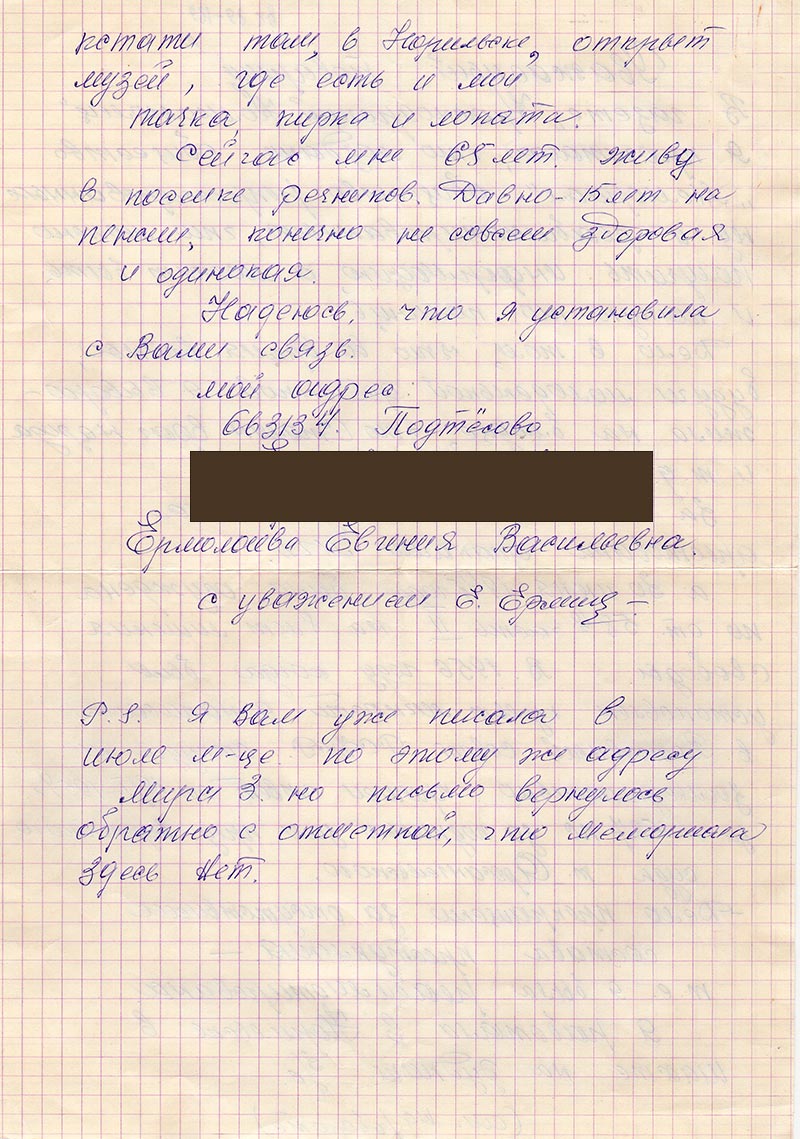 кстати там, в Норильске, открыт
музей, где есть и мои
тачка, кирка и лопата.
Сейчас мне 65 лет. живу
в поселке речников. Давно - 15 лет на
пенсии, конечно не совсем здоровая
и одинокая.
Надеюсь, что я установила
с Вами связь.
мой адрес:
663134. Подтёсово
Ермолаева Евгения Васильевна.
с уважением Е.
P.S. Я Вам уже писала в
июле м-це по этому же адресу
Мира 3. но письмо вернулось
обратно с отметкой, что Мемориала
здесь нет.